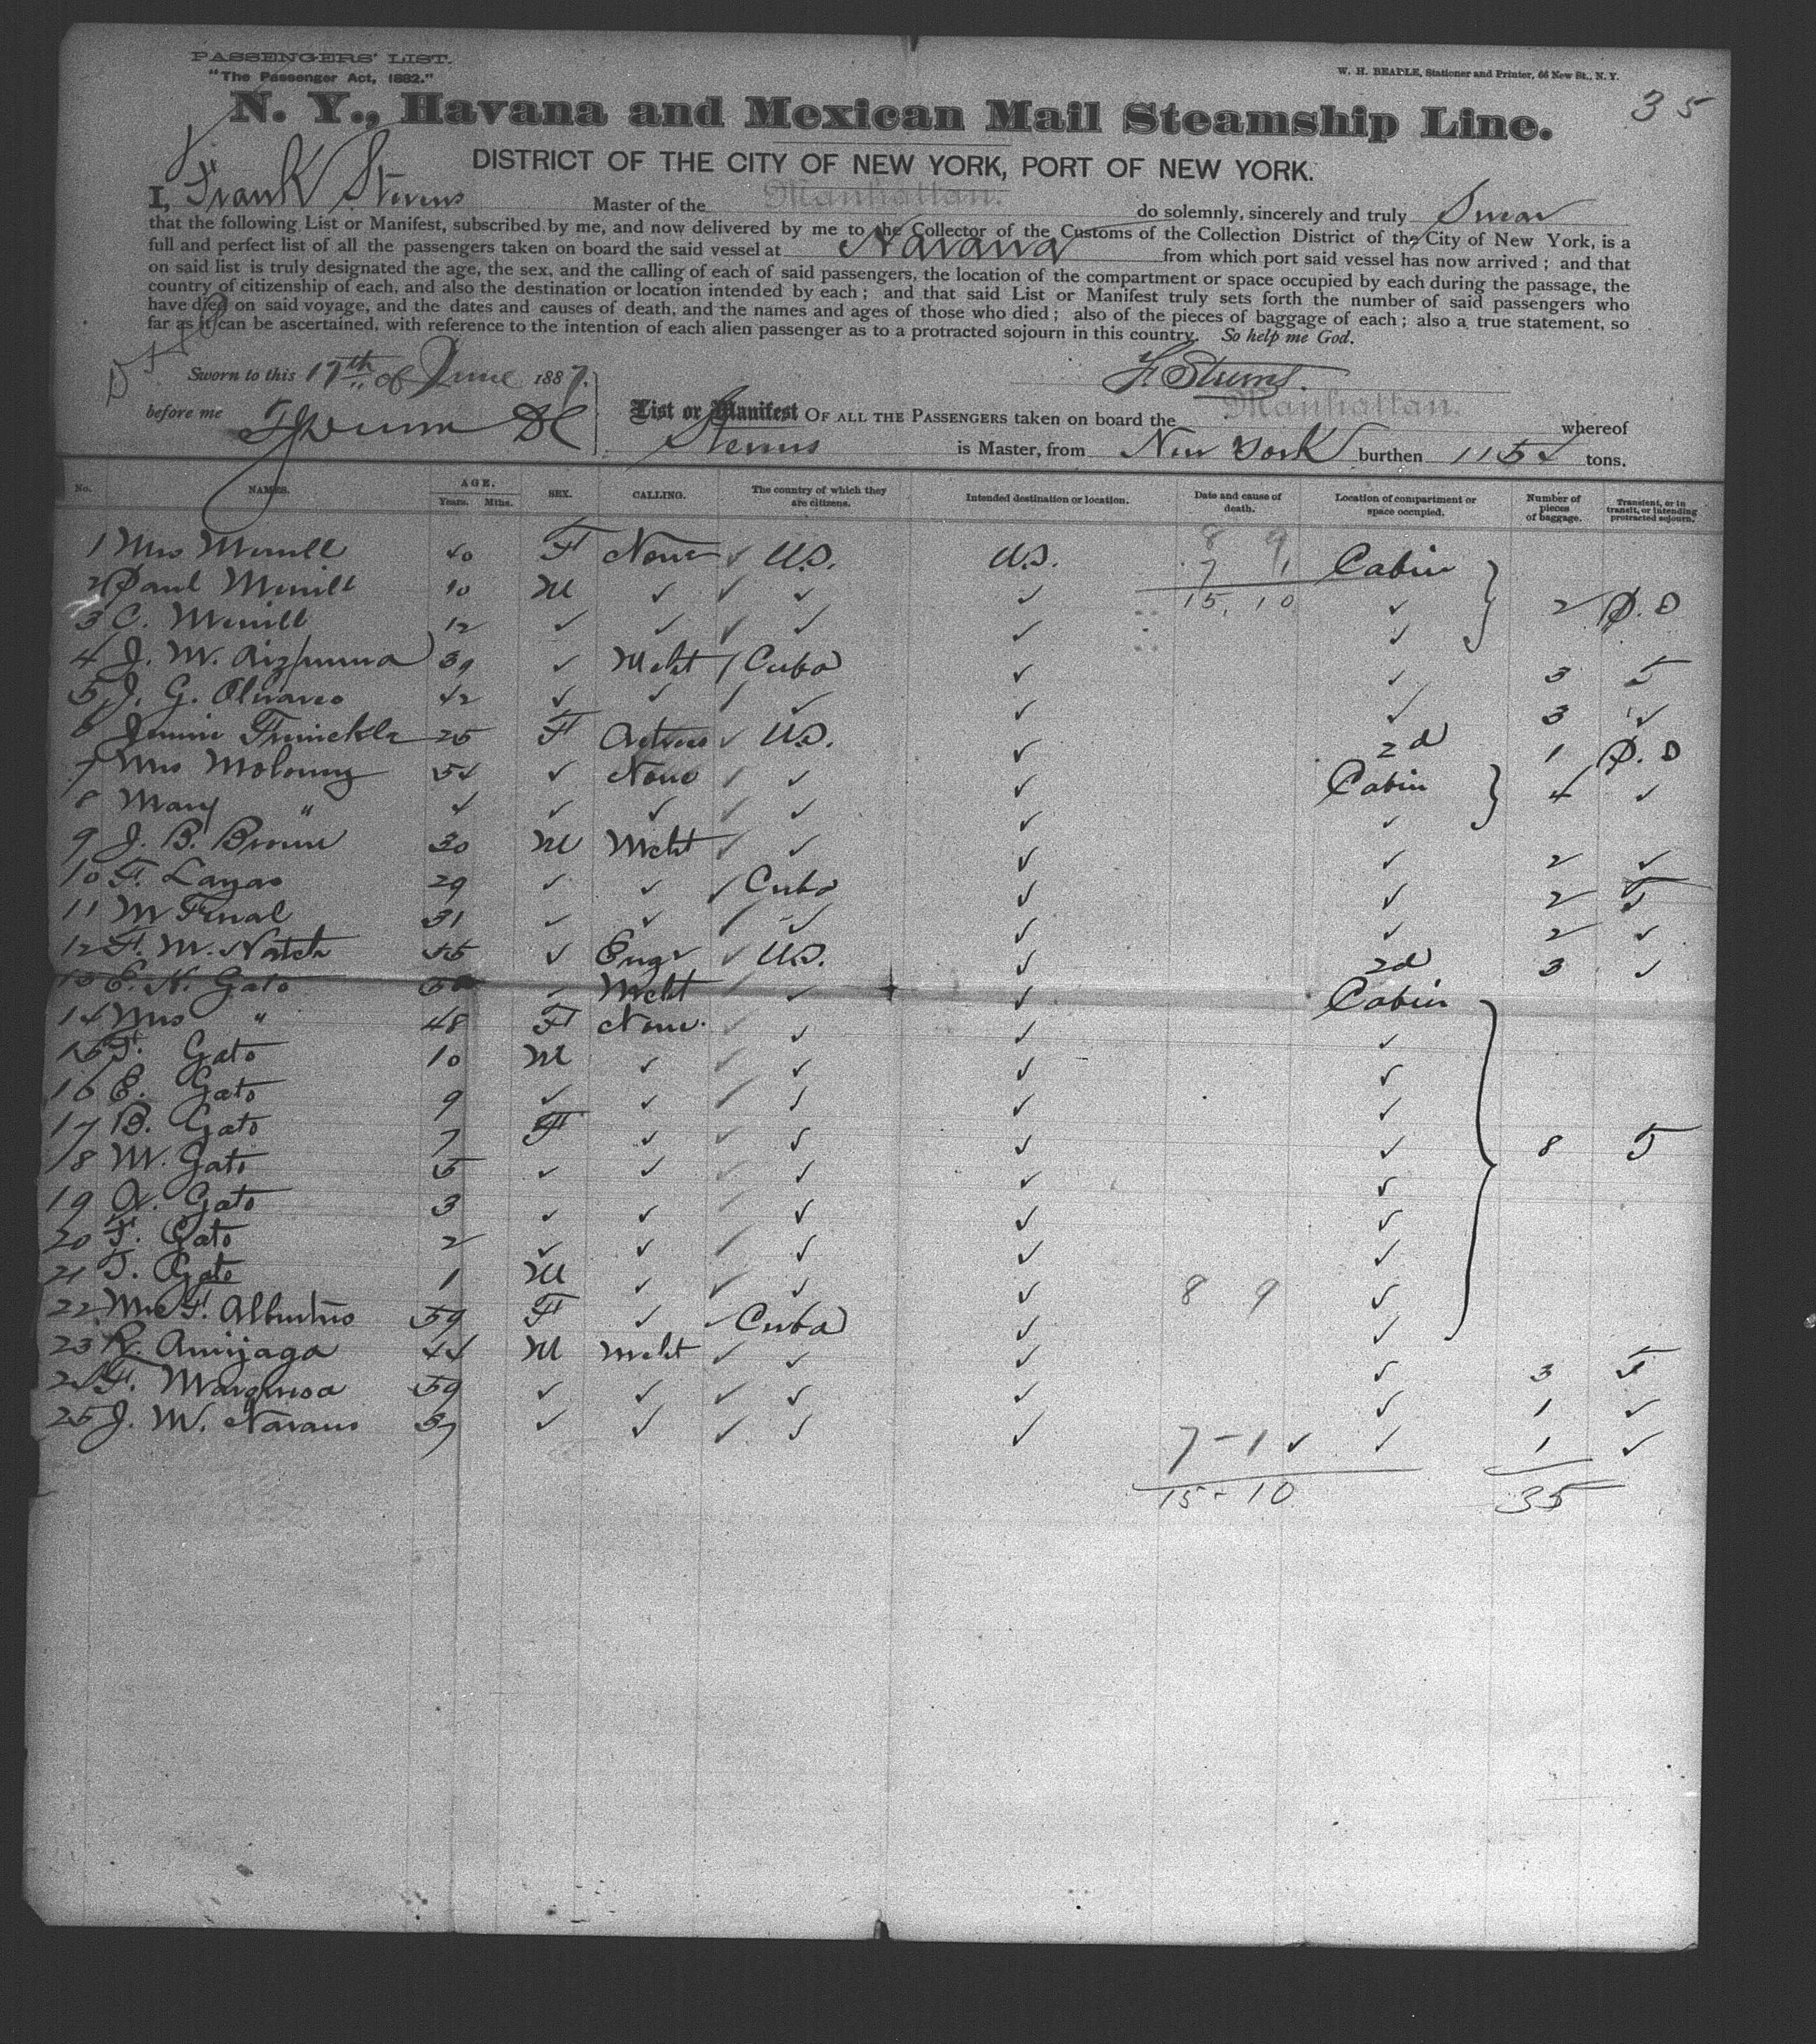 PASSENGERS' LIST.
"The Passenger Act, 1882."
W. H. BEADLE, Stationer and Printer, 66 New St., N. Y.
35
N. Y., Havana and Mexican Mail Steamship Line.
DISTRICT OF THE CITY OF NEW YORK, PORT OF NEW YORK.
I, Frank Stevens Master of the Manhattan. do solemnly, sincerely and truly Swear
that the following List or Manifest, subscribed by me, and now delivered by me to the Collector of the Customs of the Collection District of the City of New York, is a
full and perfect list of all the passengers taken on board the said vessel at Havana from which port said vessel has now arrived; and that
on said list is truly designated the age, the sex, and the calling of each of said passengers, the location of the compartment or space occupied by each during the passage, the
country of citizenship of each, and also the destination or location intended by each; and that said List or Manifest truly sets forth the number of said passengers who
have died on said voyage, and the dates and causes of death, and the names and ages of those who died; also of the pieces of baggage of each; also a true statement, so
far as it can be ascertained, with reference to the intention of each alien passenger as to a protracted sojourn in this country. So help me God.
Sworn to this 17th of June 1887. F Stevens.
before me
List or Manifest OF ALL THE PASSENGERS taken on board the Manhattan. whereof
Stevens is Master, from New York burthen 1154 tons.
No. NAMES. AGE. Years. Mths. SEX. CALLING. The country of which they are citizens. Intended destination or location. Date and cause of death. Location of compartment or space occupied. Number of pieces of baggage. Transient, or in transit, or intending protracted sojourn.
1 Mrs Merrill 40 F None ✓ U.S. U.S. 8 9 Cabin
2 Paul Merrill 10 M ✓ ✓ ✓ ✓ 7 1 ✓ 2 P.S
3 C. Merrill 12 ✓ ✓ ✓ ✓ ✓ 15, 10 ✓
4 J. M. Aizpurua 39 ✓ Mcht ✓ Cuba ✓ ✓ 3 T
5 J. G. Olivares 42 ✓ ✓ ✓ ✓ ✓ ✓ 3 ✓
6 Jennie 25 F Actress ✓ U.S. ✓ 2d 1 P.S
7 Mrs Moloney 54 ✓ None ✓ ✓ ✓ Cabin 4 ✓
8 Mary " 4 ✓ ✓ ✓ ✓ ✓ ✓
9 J. B. Brown 30 M Mcht ✓ ✓ ✓ ✓ 2 ✓
10 F. Layas 29 ✓ ✓ ✓ Cuba ✓ ✓ 2 T
11 M 31 ✓ ✓ ✓ ✓ ✓ ✓ 2 ✓
12 F. M. Natch 55 ✓ Engr ✓ U.S. ✓ 2d 3 ✓
13 E. H. Gato ✓ Mcht ✓ ✓ ✓ Cabin
14 Mrs " 48 F None. ✓ ✓ ✓ ✓
15 F. Gato 10 M ✓ ✓ ✓ ✓ ✓
16 E. Gato 9 ✓ ✓ ✓ ✓ ✓ ✓
17 B. Gato 7 F ✓ ✓ ✓ ✓ ✓ 8 T
18 M. Gato 5 ✓ ✓ ✓ ✓ ✓ ✓
19 A. Gato 3 ✓ ✓ ✓ ✓ ✓ ✓
20 F. Gato 2 ✓ ✓ ✓ ✓ ✓ ✓
21 T. Gato 1 M ✓ ✓ ✓ ✓ 8 9 ✓
22 Mrs F. 59 F ✓ ✓ Cuba ✓ ✓
23 R. Amijaga 44 M Mcht ✓ ✓ ✓ ✓ 3 T
24 F. 59 ✓ ✓ ✓ ✓ ✓ ✓ 1 ✓
25 J. M. 37 ✓ ✓ ✓ ✓ ✓ 7 - 1 ✓ ✓ 1 ✓
15 - 10 35